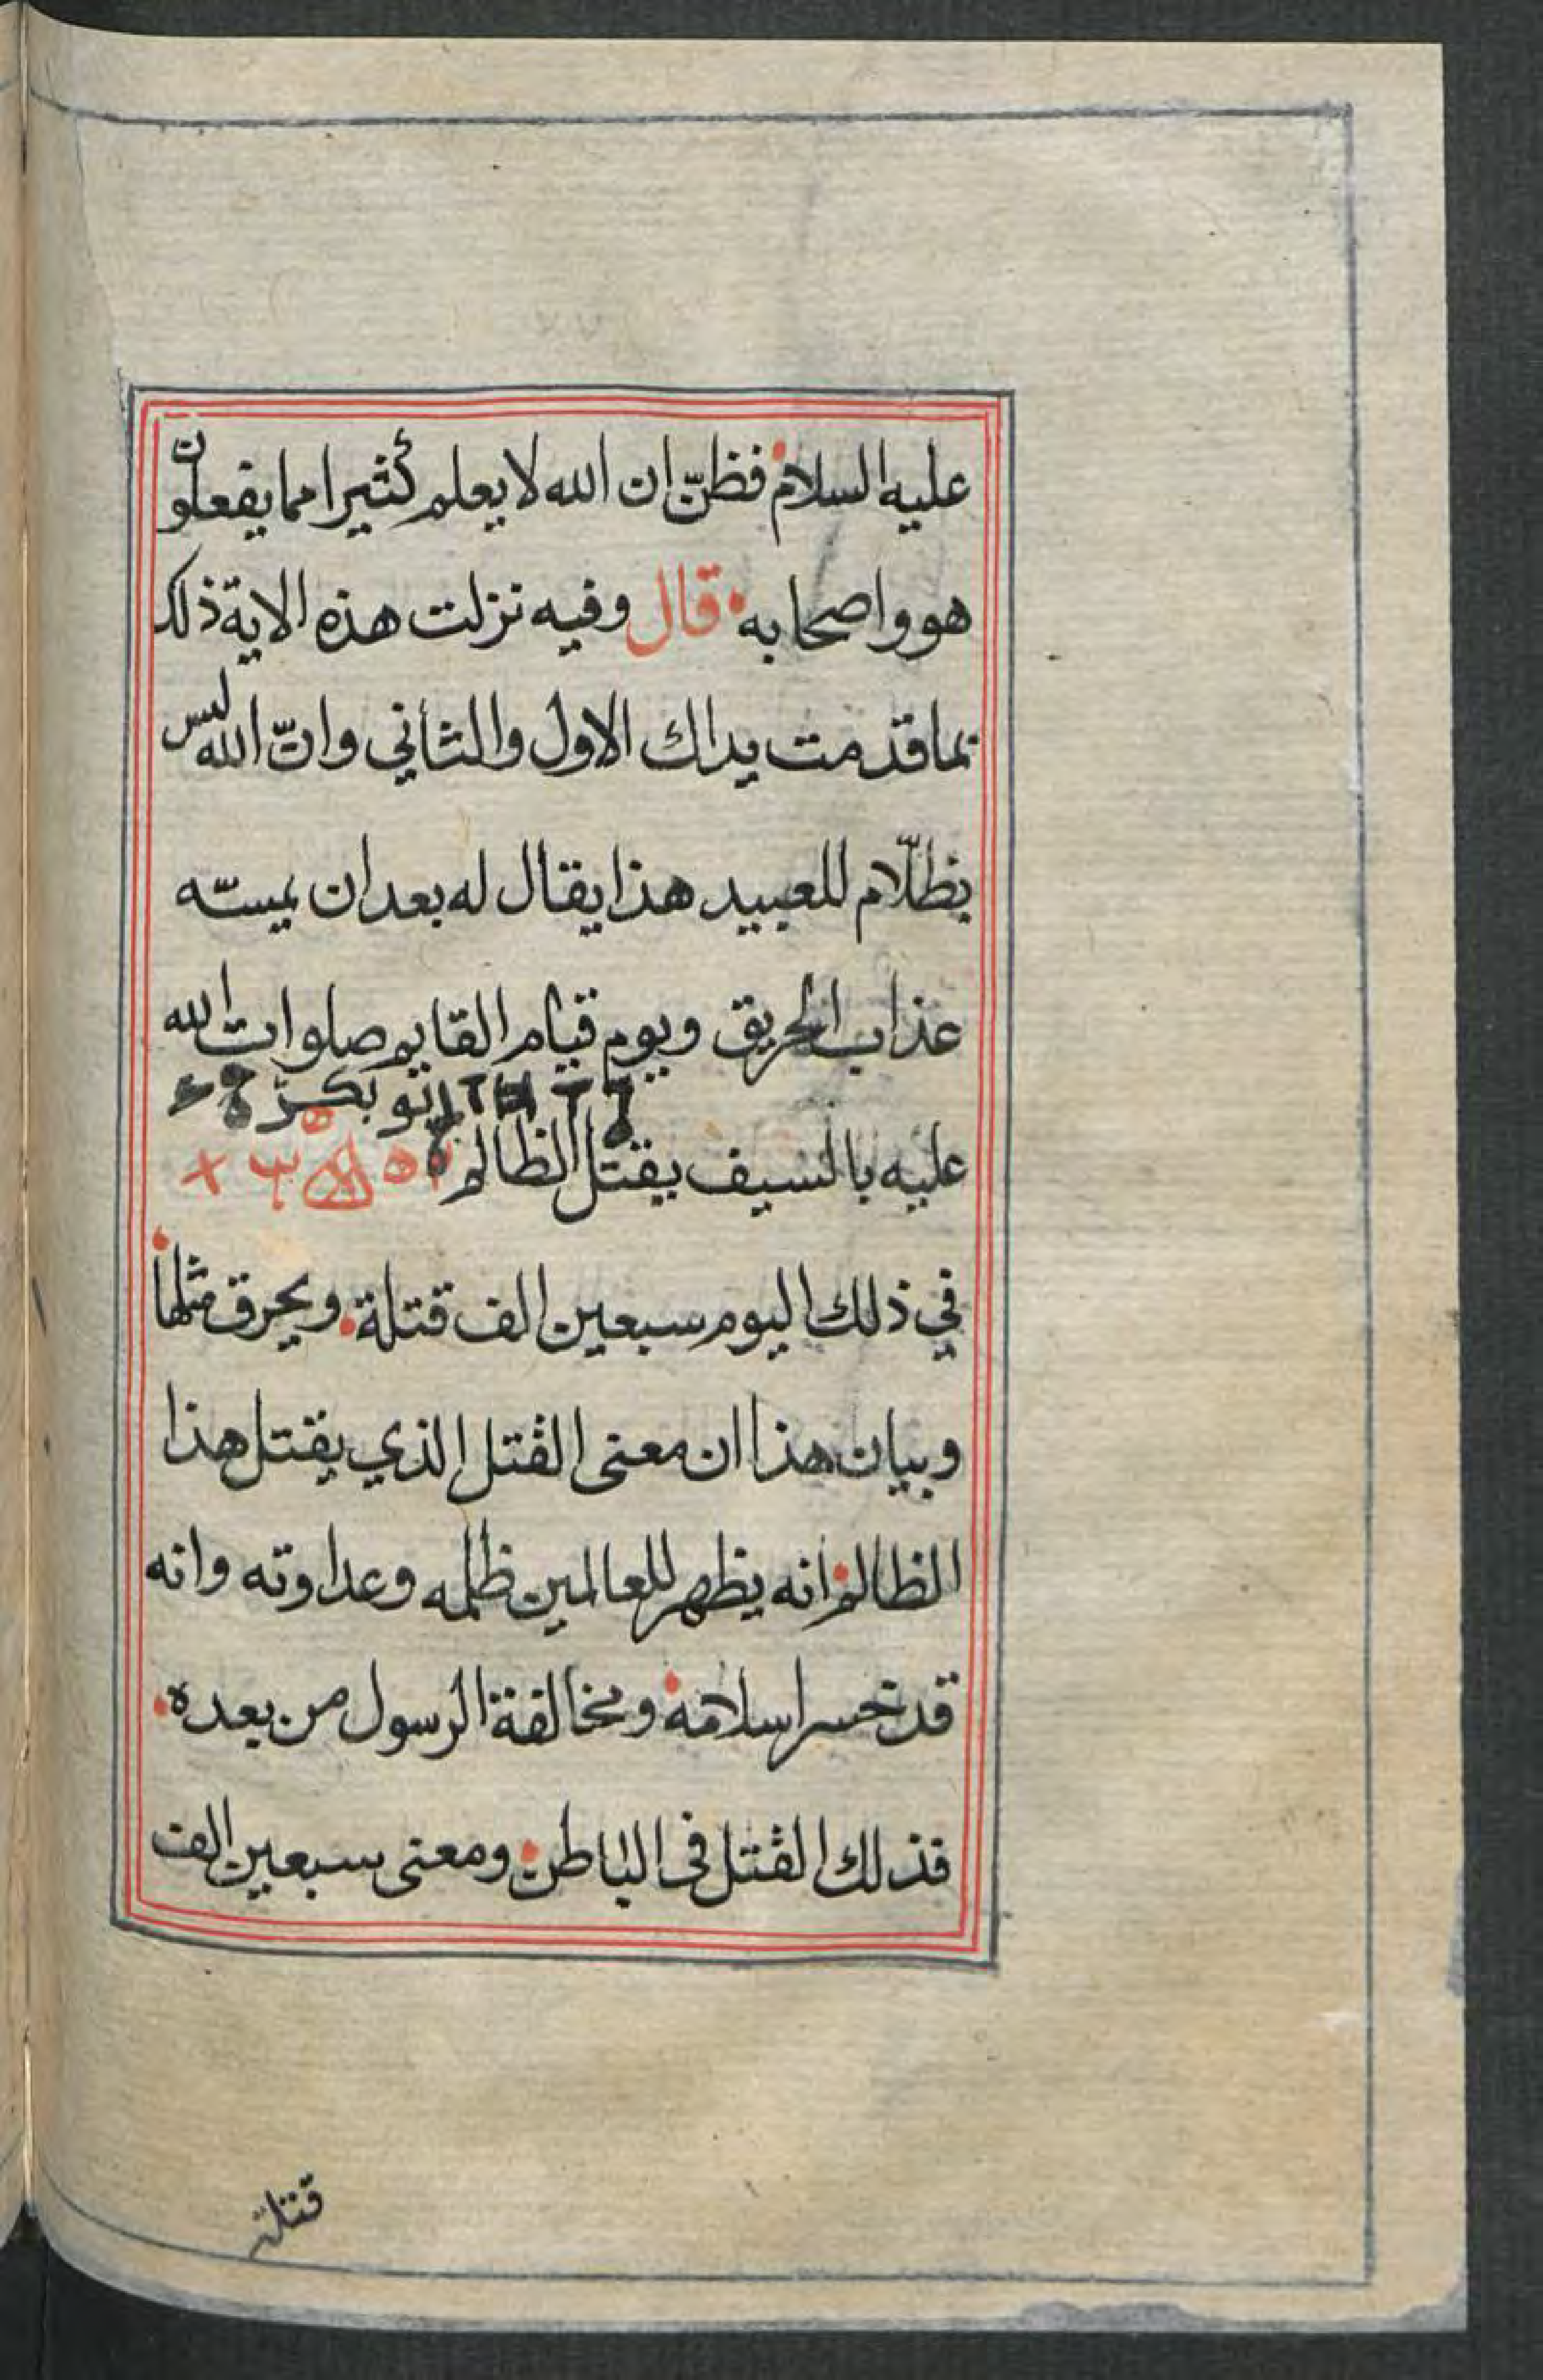 عليه السلام فظنّ ان الله لا يعلم كثيرا مما يفعلون
هو واصحابه قال وفيه نزلت هذه الاية ذلك
بما قدمت يداك الاول والثاني وانّ الله ليس
بظلّام للعبيد هذا يقال له بعد ان يمسّه
عذاب الحريق ويوم قيام القايم صلوات الله
عليه بالسيف يقتل الظالم
في ذلك اليوم سبعين الف قتلة ويحرق مثلها
وبيان هذا ان معنى القتل الذي يقتل هذا
الظالم انه يظهر للعالمين ظلمه وعداوته وانه
قد خسر اسلامه ومخالفة الرسول من بعده
فذلك القتل في الباطن ومعنى سبعين الف
قتلة